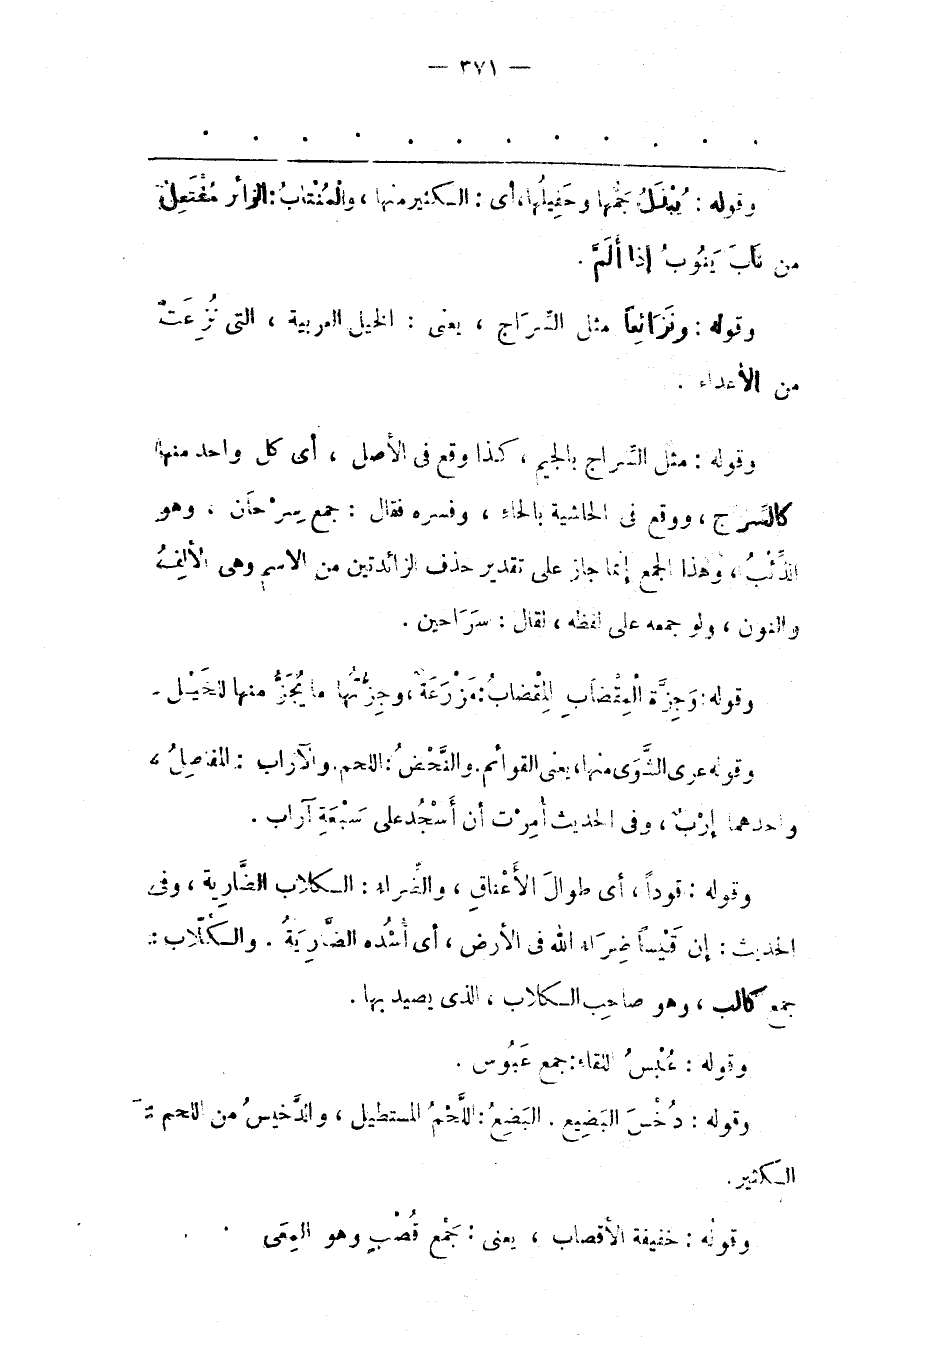 — ٣٧١ —
. . . . . . . . . . . .
وقوله : يُبْذَلُ جَمُّها وحَفِيلُها، أى : الكثير منها ، والْمُنْتابُ: الزائر مُفْتَعِلٌ
من نَابَ يَنُوبُ إذا أَلَمَّ .
وقوله : ونَزَائِعاً مثل السِّرَاج ، يعنى : الخيل العربية ، التى نُزِعَتْ
من الأعداء .
وقوله : مثل السَّراج بالجيم ، كذا وقع فى الأصل ، أى كل واحد منها
كالسَّرج ، ووقع فى الحاشية بالحاء ، وفسره فقال : جمع سِرْحَان ، وهو
الذِّئْبُ ، وهذا الجمع إنَّما جاز على تقدير حذف الزائدتين من الاسم وهى الألِفُ
والنون ، ولو جمعه على لفظه ، لقال : سَرَاحين .
وقوله: وَجِزَّة الْمِقْضَابِ المِقْضابُ: مَزْرَعَة ، وجِزَّتُها ما يُجَزُّ منها للخَيْـل .
وقوله عرى الشَّوَى منها، يعنى القوائم. والنَّحْضُ: اللحم. والآراب : المفاصِلُ ،
واحدهما إرْبٌ ، وفى الحديث أُمِرْت أن أَسْجُد على سَبْعَةِ آراب .
وقوله : قوداً ، أى طوالَ الأَعْناقِ ، والضِّراء : الكلاب الضَّارِية ، وفى
الحديث : إن قَيْساً ضِرَاء الله فى الأرض ، أى أُسْدُه الضَّارِيَةُ . والكَلّاب :
جمع كالب ، وهو صاحِب الكلاب ، الذى يصيد بها .
وقوله : عُبْسُ اللقاء: جمع عَبُوس .
وقوله : دُخْسَ البَضِيع . البَضِيعُ: اللَّحْمُ المستطيل ، والدَّخيسُ من اللحم :
الكثير .
وقوله : خفيفة الأقصاب ، يعنى : جَمْع قُصْبٍ وهو المِعَى